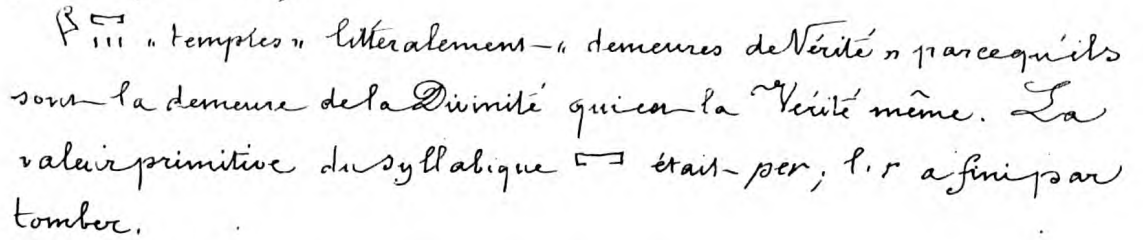 𓊹𓉐𓏥 „ temples „ littéralement „ demeures de Vérité „ parcequ'ils
sont la demeure de la Divinité qui est la Vérité même. La
valeur primitive du syllabique 𓉐 était per; l'r a fini par
tomber.